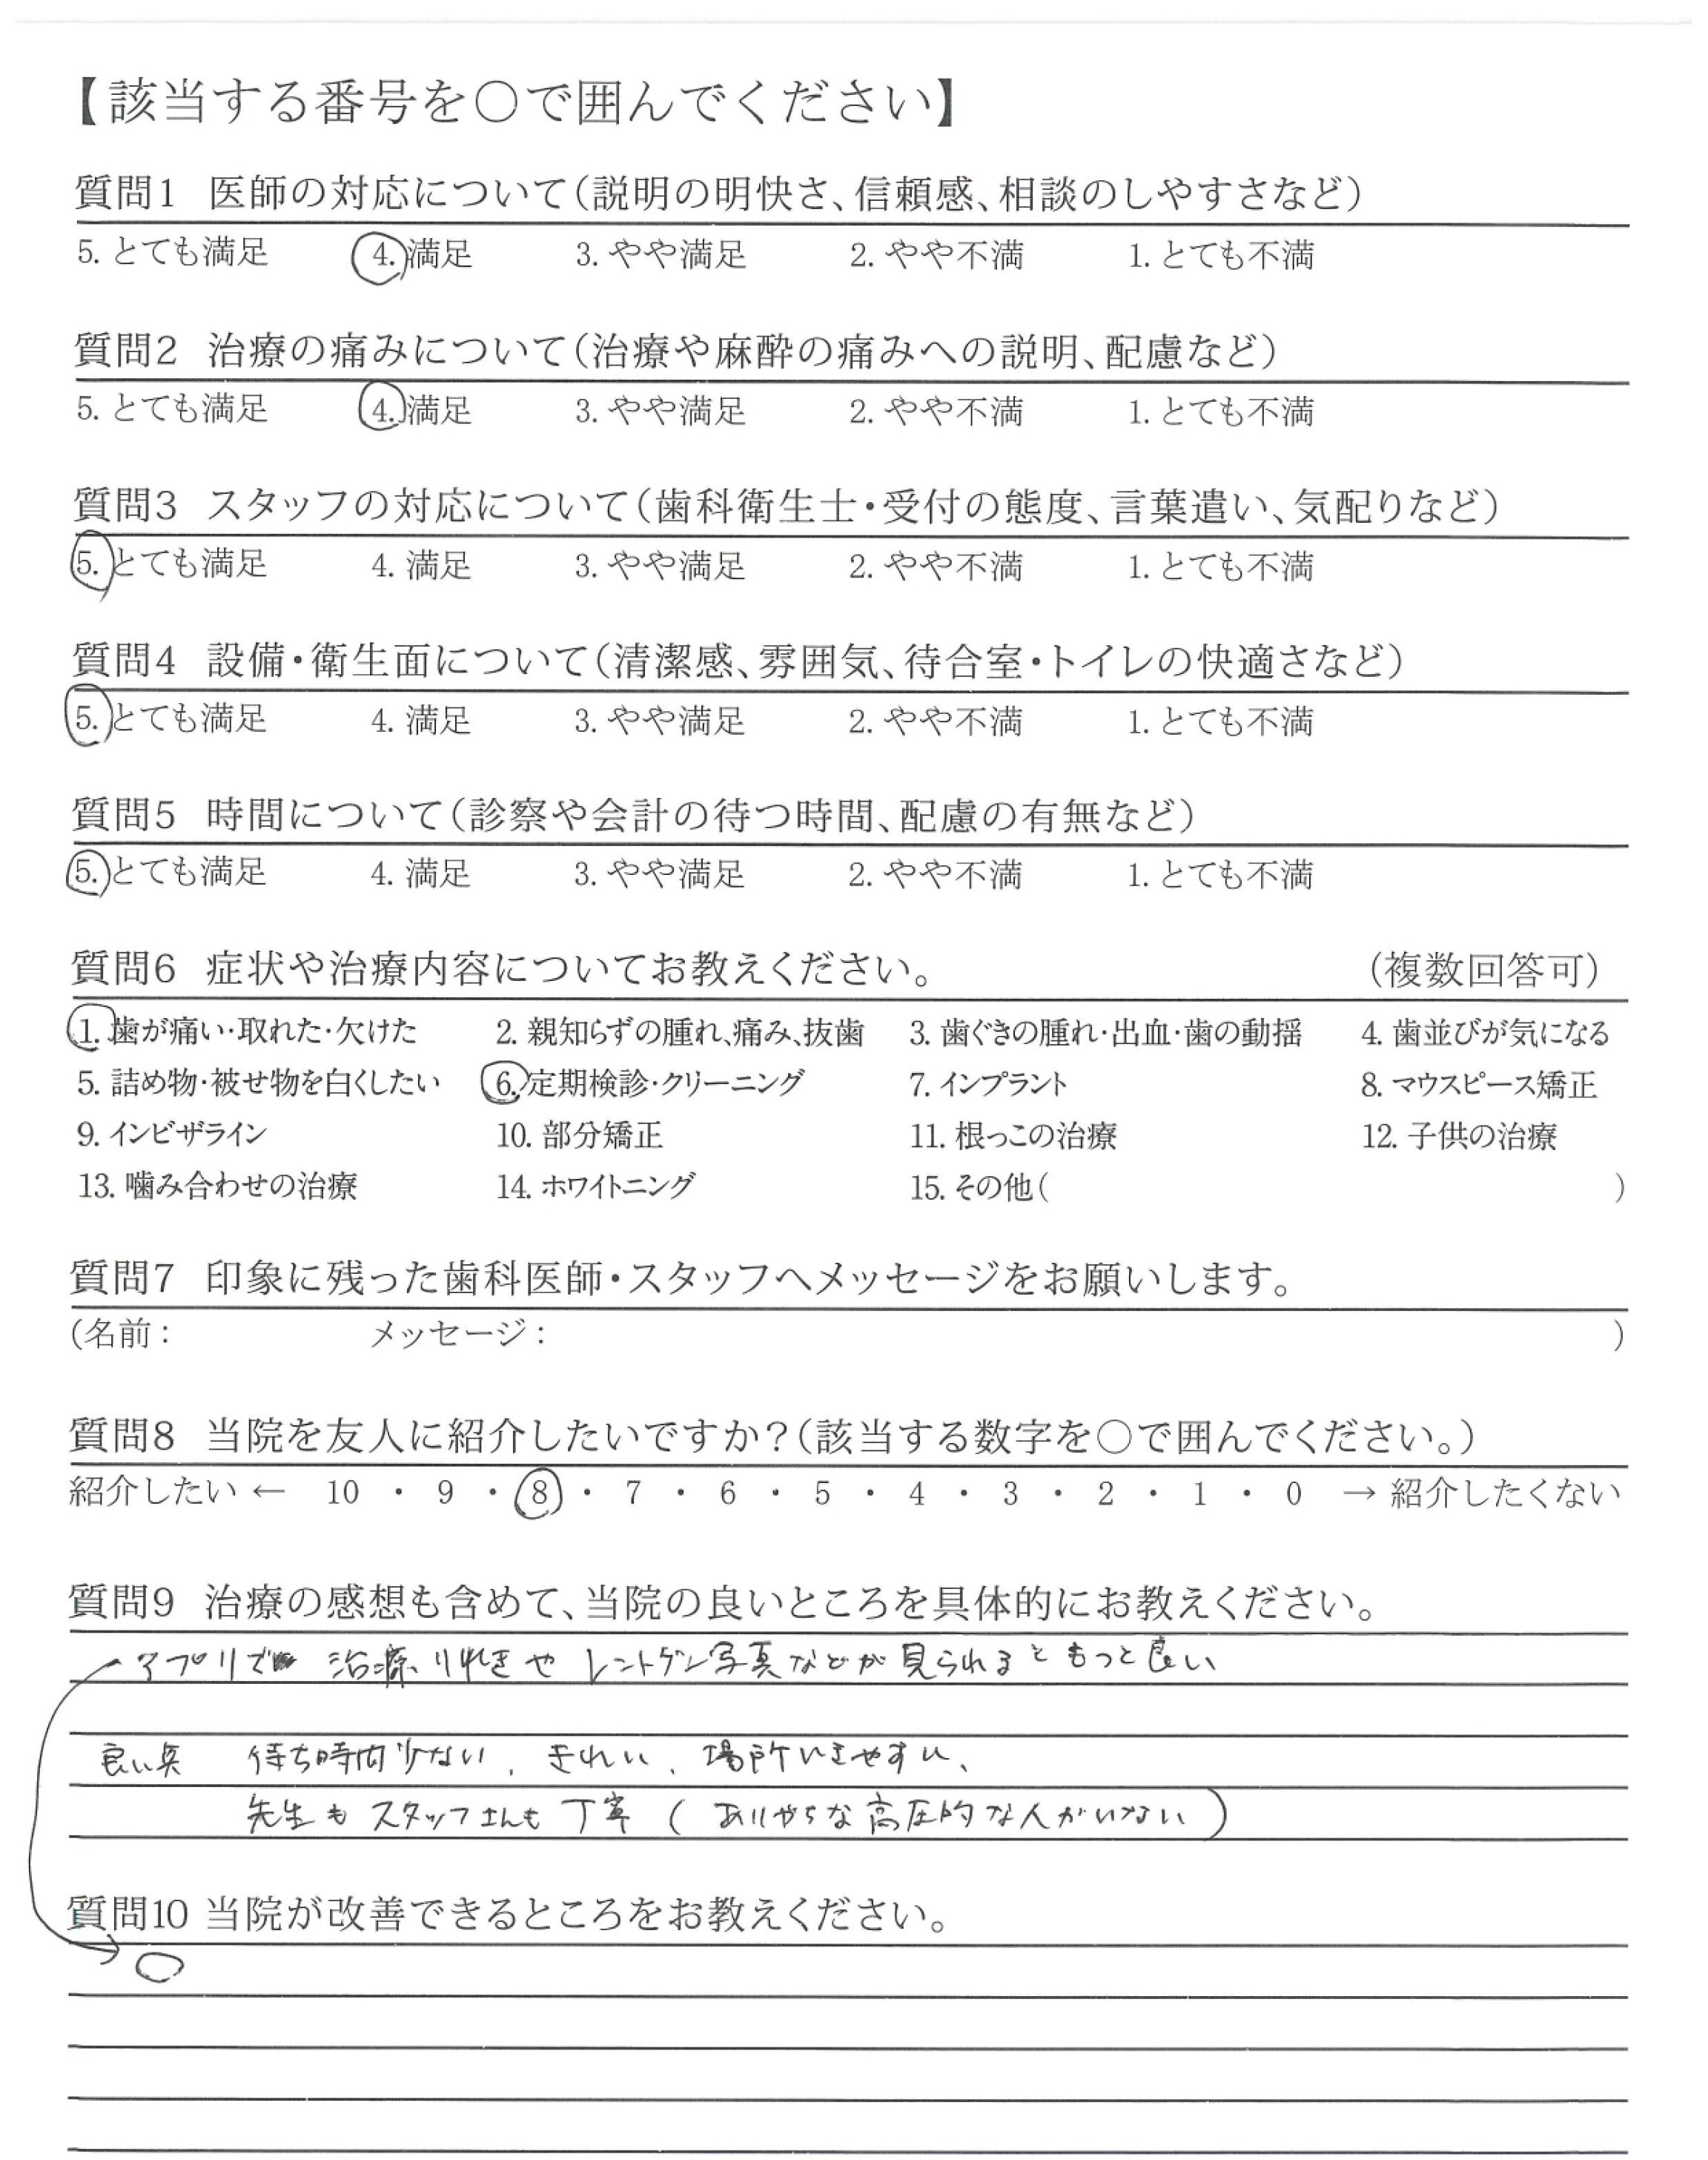 【該当する番号を○で囲んでください】
質問1 医師の対応について(説明の明快さ、信頼感、相談のしやすさなど)
5. とても満足 4. 満足 3. やや満足 2. やや不満 1. とても不満
質問2 治療の痛みについて(治療や麻酔の痛みへの説明、配慮など)
5. とても満足 4. 満足 3. やや満足 2. やや不満 1. とても不満
質問3 スタッフの対応について(歯科衛生士・受付の態度、言葉遣い、気配りなど)
5. とても満足 4. 満足 3. やや満足 2. やや不満 1. とても不満
質問4 設備・衛生面について(清潔感、雰囲気、待合室・トイレの快適さなど)
5. とても満足 4. 満足 3. やや満足 2. やや不満 1. とても不満
質問5 時間について(診察や会計の待つ時間、配慮の有無など)
5. とても満足 4. 満足 3. やや満足 2. やや不満 1. とても不満
質問6 症状や治療内容についてお教えください。 (複数回答可)
1. 歯が痛い・取れた・欠けた 2. 親知らずの腫れ、痛み、抜歯 3. 歯ぐきの腫れ・出血・歯の動揺 4. 歯並びが気になる
5. 詰め物・被せ物を白くしたい 6. 定期検診・クリーニング 7. インプラント 8. マウスピース矯正
9. インビザライン 10. 部分矯正 11. 根っこの治療 12. 子供の治療
13. 噛み合わせの治療 14. ホワイトニング 15. その他( )
質問7 印象に残った歯科医師・スタッフへメッセージをお願いします。
(名前: メッセージ: )
質問8 当院を友人に紹介したいですか?(該当する数字を○で囲んでください。)
紹介したい ← 10 ・ 9 ・ 8 ・ 7 ・ 6 ・ 5 ・ 4 ・ 3 ・ 2 ・ 1 ・ 0 → 紹介したくない
質問9 治療の感想も含めて、当院の良いところを具体的にお教えください。
アプリで 治療りれきや レントゲン写真などが見られるともっと良い
良い点 待ち時間少ない、きれい、場所いきやすい、
先生もスタッフさんも丁寧(ありがちな高圧的な人がいない)
質問10 当院が改善できるところをお教えください。